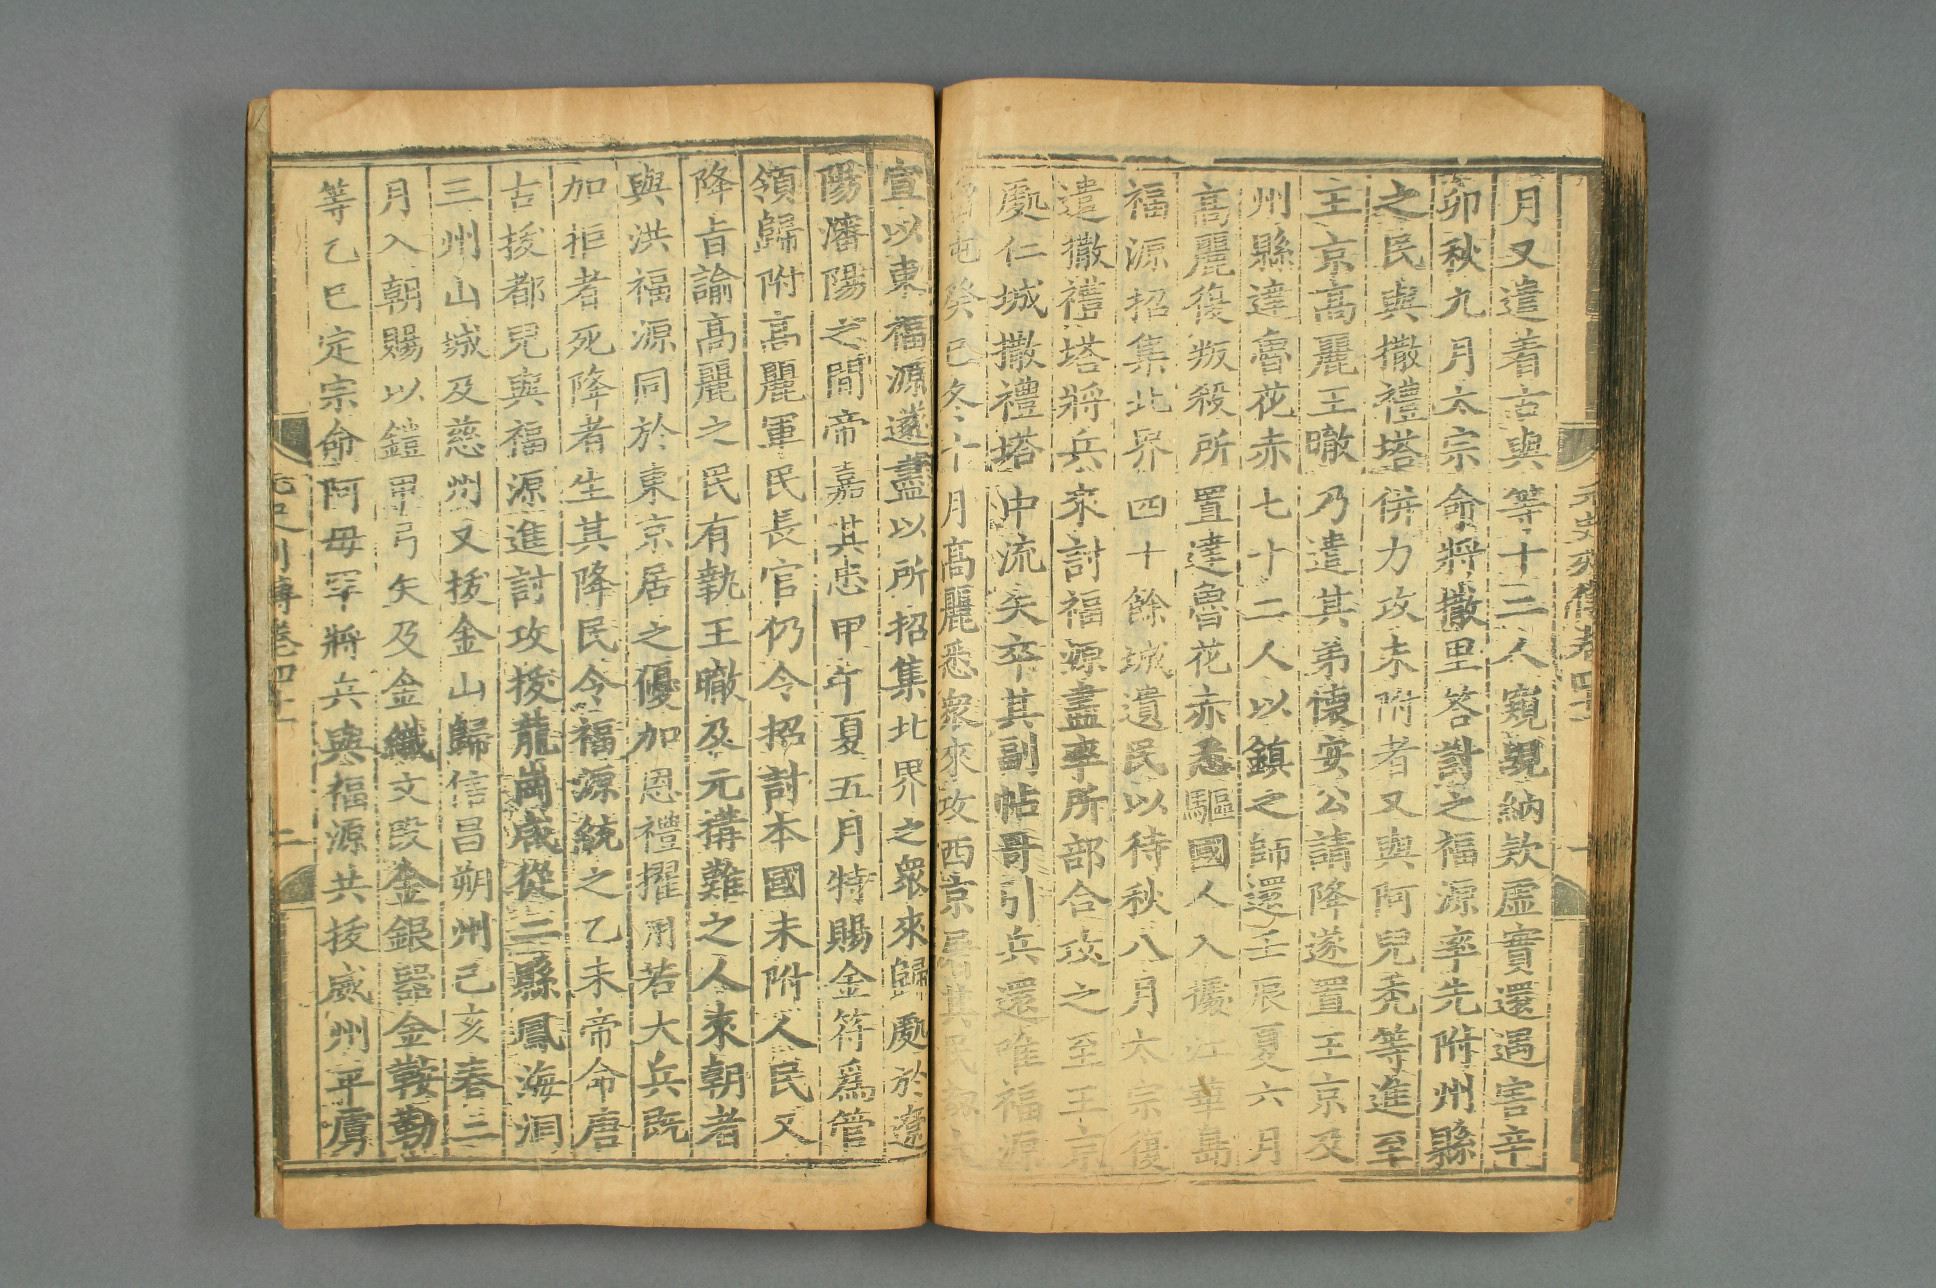 月又遣着古與等十二人窺覘納欵虛實還遇害辛
卯秋九月太宗命將撒里答討之福源率先附州縣
之民與撒禮塔併力攻未附者又與阿兒禿等進至
王京高麗王㬚乃遣其弟懷安公請降遂置王京及
州縣達魯花赤七十二人以鎮之師還壬辰夏六月
高麗復叛殺所置達魯花赤悉驅國人入據江華島
福源招集北界四十餘城遺民以待秋八月太宗復
遣撒禮塔將兵來討福源盡率所部合攻之至王京
處仁城撒禮塔中流矢卒其副帖哥引兵還唯福源
屯癸巳冬十月高麗悉衆來攻西京屠其民
宣以東福源遂盡以所招集北界之衆來歸處於遼
陽瀋陽之間帝嘉其忠甲午夏五月特賜金符爲管
領歸附高麗軍民長官仍令招討本國未附人民又
降旨諭高麗之民有執王㬚及元搆難之人來朝者
與洪福源同於東京居之優加恩禮擢用若大兵既
加拒者死降者生其降民令福源統之乙未帝命唐
古拔都兒與福源進討攻拔龍崗咸從二縣鳳海洞
三州山城及慈州又拔金山歸信昌朔州己亥春三
月入朝賜以鎧甲弓矢及金織文段金銀器金鞍勒
等乙巳定宗命阿毋罕將兵與福源共拔威州平虜
元史列傳卷四十一
二